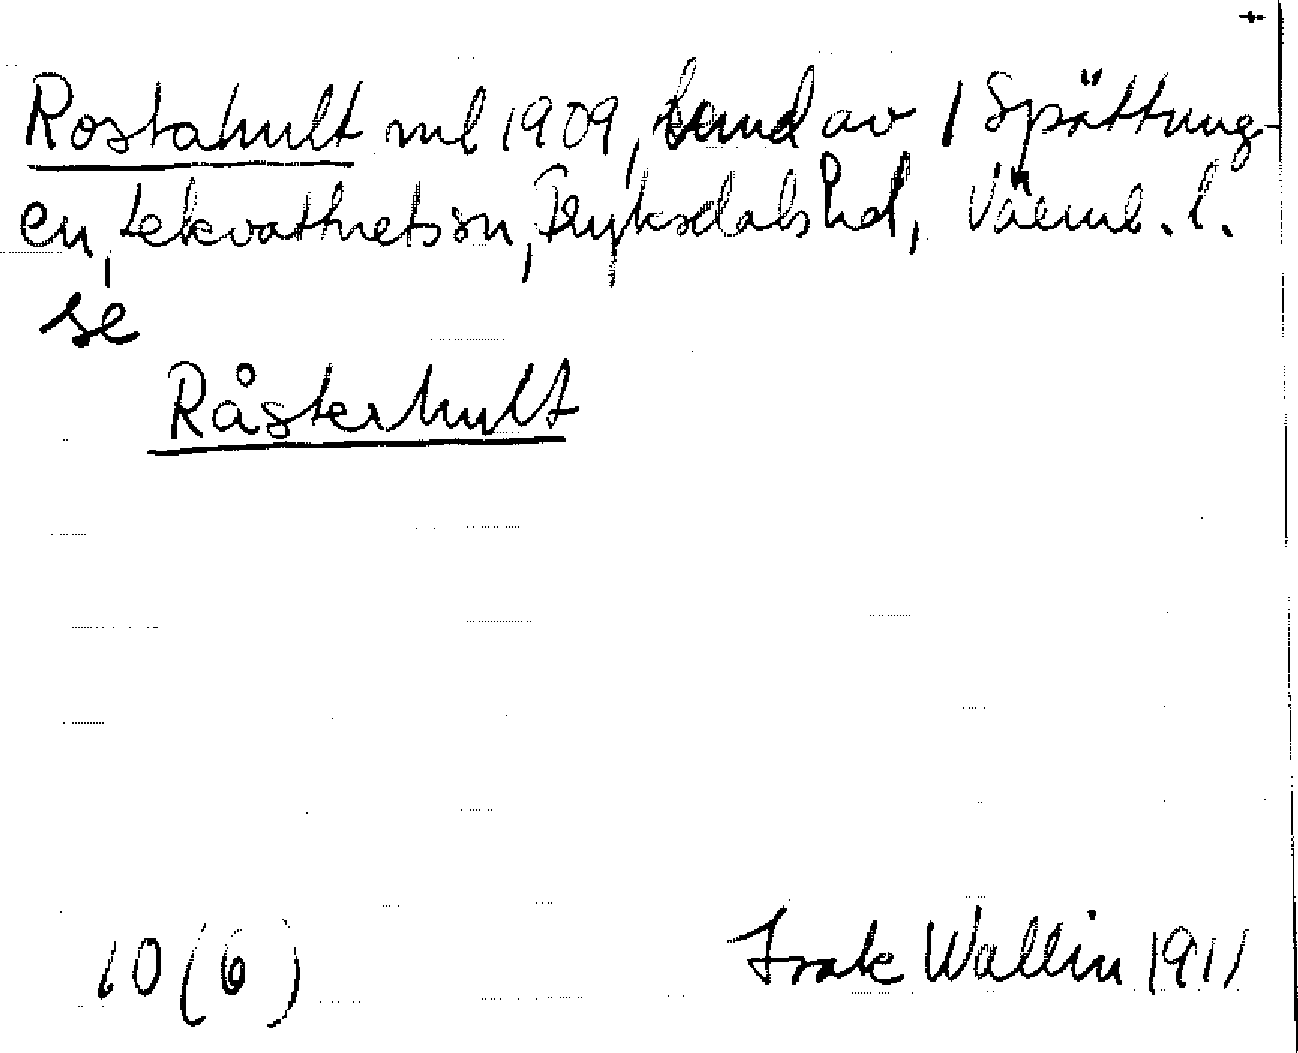 Rostahult ml 1909, Lund av 1 Spättung-
en, Lekvattnets sn, Fryksdals hd, Värml. l.
se
Råsterhult
10 (6) Isak Wallin 1911